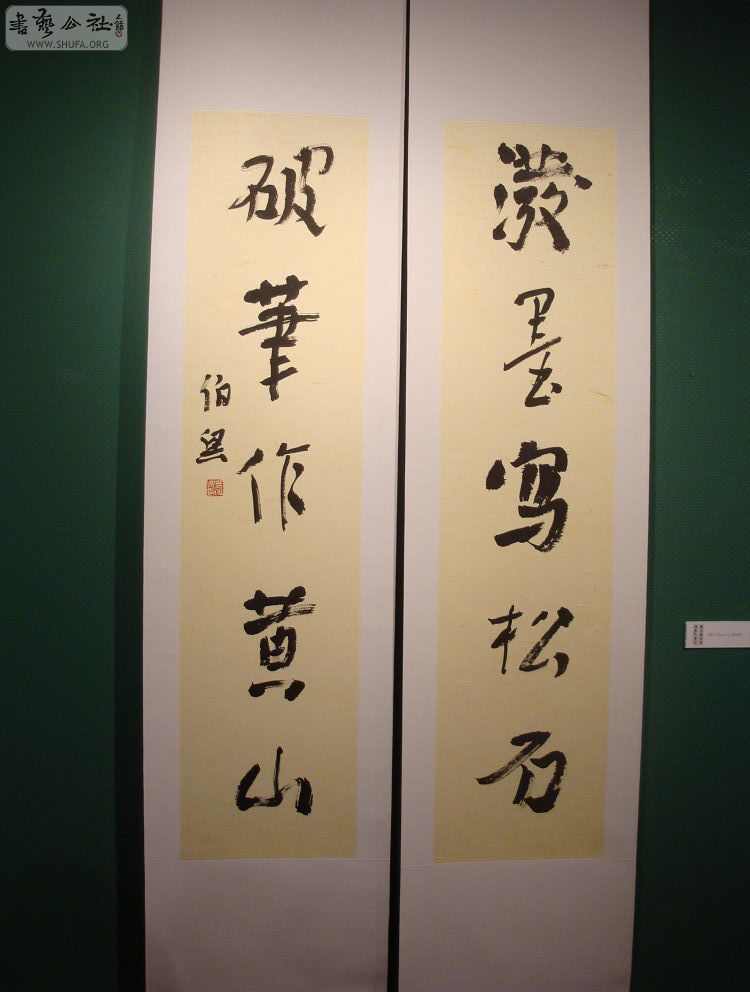 书艺公社
WWW.SHUFA.ORG
潑墨写松石
破筆作黄山
伯翠